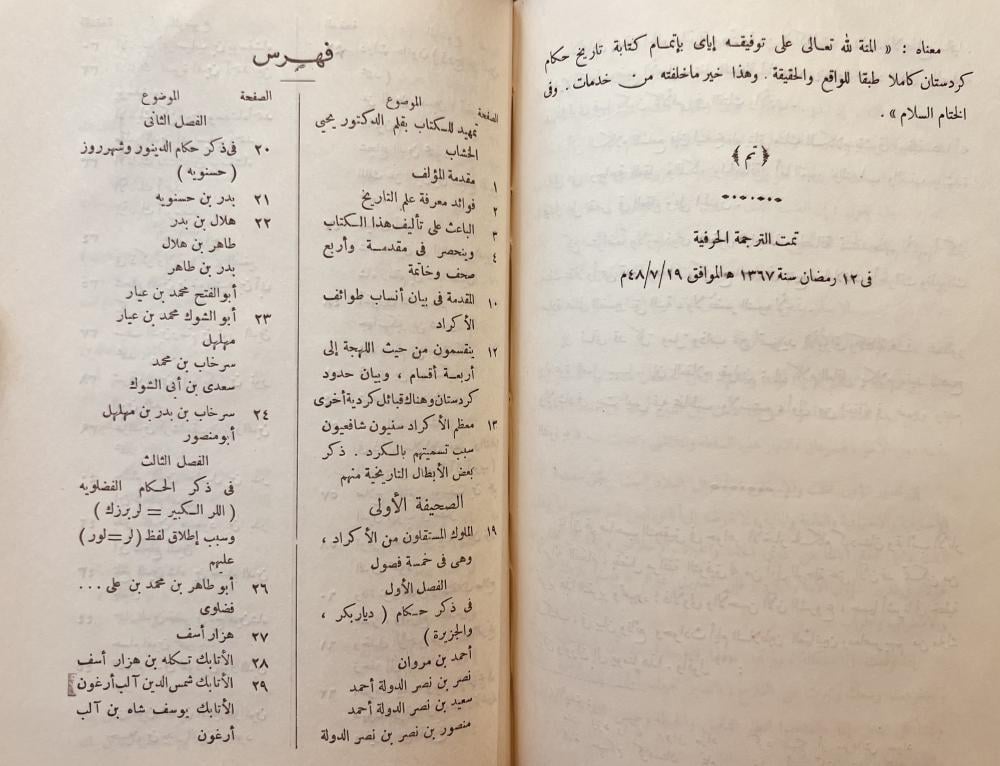 معناه : « المنة لله تعالى على توفيقه إياى بإتمام كتابة تاريخ حكام
كردستان كاملا طبقا للواقع والحقيقة . وهذا خير ماخلفته من خدمات . وفى
الختام السلام » .
﴿ تم ﴾
تمت الترجمة الحرفية
فى ١٢ رمضان سنة ١٣٦٧ ھ الموافق ٤٨/٧/١٩م
فهرس
الصفحة الموضوع
تمهيد للكتاب بقلم الدكتور يحيى
الخشاب
١ مقدمة المؤلف
٢ فوائد معرفة علم التاريخ
٣ الباعث على تأليف هذا الكتاب
٤ وينحصر فى مقدمة وأربع
صحف وخاتمة
١٠ المقدمة فى بيان أنساب طوائف
الأكراد
١٢ ينقسمون من حيث اللهجة إلى
أربعة أقسام ، وبيان حدود
كردستان وهناك قبائل كردية أخرى
١٣ معظم الأكراد سنيون شافعيون
سبب تسميتهم بالكرد . ذكر
بعض الأبطال التاريخية منهم
الصحيفة الأولى
١٩ الملوك المستقلون من الأكراد ،
وهى فى خمسة فصول
الفصل الأول
فى ذكر حكام ( ديار بكر ،
والجزيرة )
أحمد بن مروان
نصر بن نصر الدولة أحمد
سعيد بن نصر الدولة أحمد
منصور بن نصر بن نصر الدولة
الصفحة الموضوع
الفصل الثانى
٢٠ فى ذكر حكام الدينور وشهرزور
( حسنويه )
٢١ بدر بن حسنويه
٢٢ هلال بن بدر
طاهر بن هلال
بدر بن طاهر
أبو الفتح محمد بن عيار
٢٣ أبو الشوك محمد بن عيار
مهلهل
سرخاب بن محمد
سعدى بن أبى الشوك
٢٤ سرخاب بن بدر بن مهلهل
أبو منصور
الفصل الثالث
فى ذكر الحكام الفضلويه
( اللر الكبير = لر بزرك )
وسبب إطلاق لفظ ( لر = لور )
عليهم
٢٦ أبو طاهر بن محمد بن على ...
فضلوى
٢٧ هزار أسف
٢٨ الأتابك تكله بن هزار أسف
٢٩ الأتابك شمس الدين آلب أرغون
الأتابك يوسف شاه بن آلب
أرغون